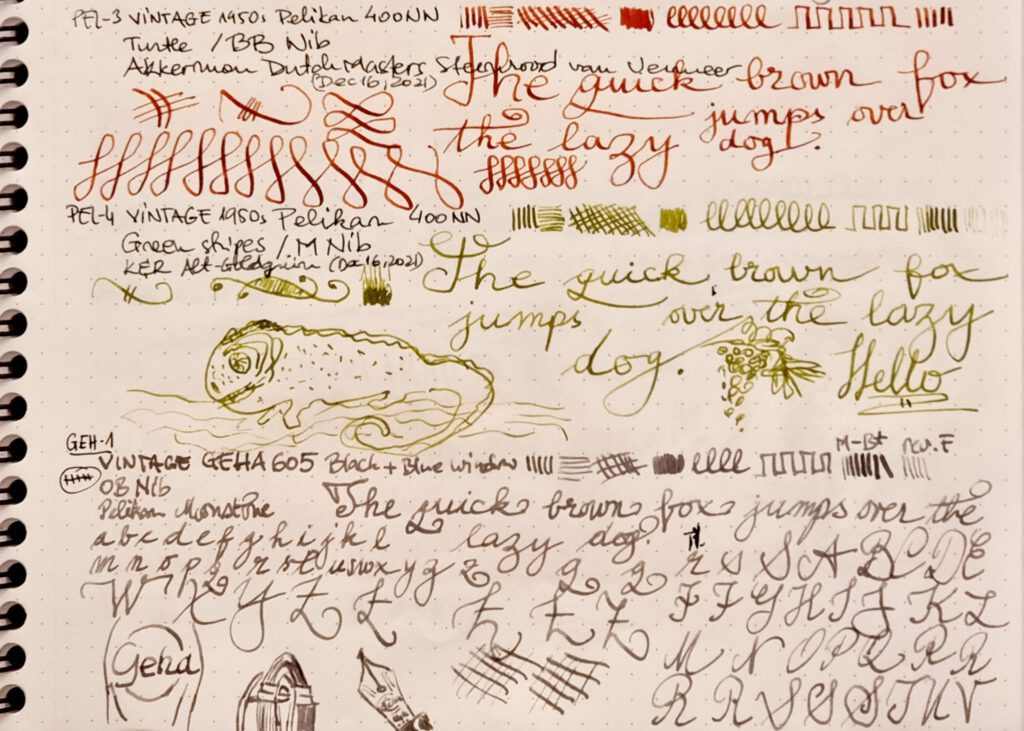 PEL-3 VINTAGE 1950s Pelikan 400NN
Turtle / BB Nib
Akkerman Dutch Masters Steenrood van Vermeer
(Dec 16, 2021)
The quick brown fox
jumps over
the lazy dog.
PEL-4 VINTAGE 1950s Pelikan 400NN
Green stripes / M Nib
KER Alt-Goldgrün (Dec 16, 2021)
The quick brown fox
jumps over the lazy
dog.
Hello
GEH-1
VINTAGE GEHA 605 Black + Blue window
M-B+ rev. F
OB Nib
Pelikan Moonstone
The quick brown fox jumps over the
lazy dog.
a b c d e f g h i j k l
m n o p s r s t u v w x y z z
r s S A B C D E
W X Y Z Z Z Z Z
F F G H I J K L
M N O P Q R R
R R S S S T U V
Geha